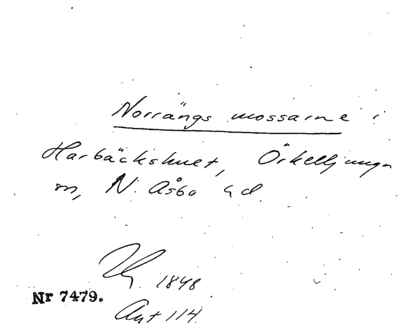 Norrängs mossarne i
Harbäckshult, Örkelljunga
sn, N. Åsbo hd.
1848
Nr 7479.
Akt 114